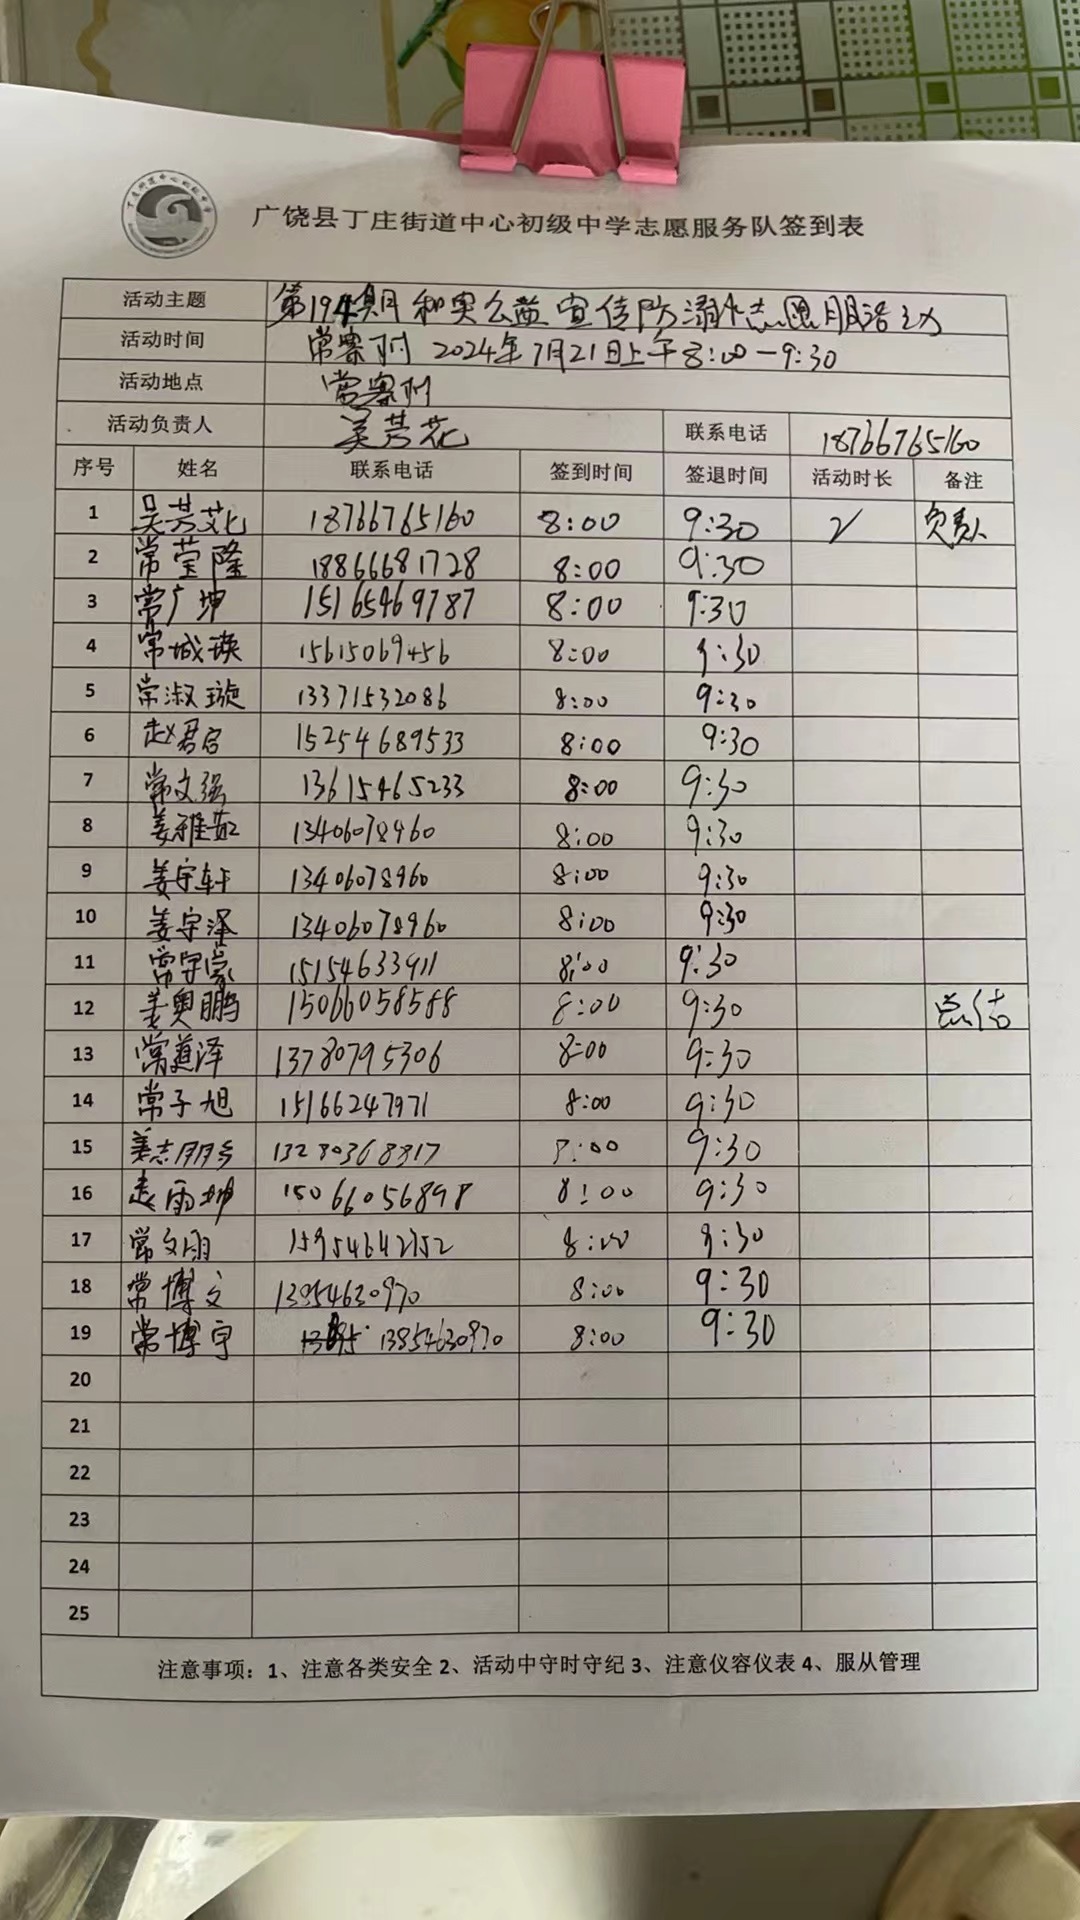 广饶县丁庄街道中心初级中学志愿服务队签到表
活动主题 第194期和实公益宣传防溺水志愿服活动
活动时间 常寨村 2024年7月21日上午8:00-9:30
活动地点 常寨村
活动负责人 吴芳花 联系电话 18766765160
序号 姓名 联系电话 签到时间 签退时间 活动时长 备注
1 吴芳花 18766765160 8:00 9:30 2 负责人
2 常莹隆 18866681728 8:00 9:30
3 常广坤 15165469787 8:00 9:30
4 常城瑛 15615069456 8:00 9:30
5 常淑璇 13371532086 8:00 9:30
6 赵君启 15254689533 8:00 9:30
7 常文强 13615465233 8:00 9:30
8 姜雅茹 13406078960 8:00 9:30
9 姜宇轩 13406078960 8:00 9:30
10 姜宇泽 13406078960 8:00 9:30
11 常宇豪 15154633911 8:00 9:30
12 姜奥鹏 15066058588 8:00 9:30 总结
13 常道泽 13780795306 8:00 9:30
14 常子旭 15166247971 8:00 9:30
15 姜志朋 13280368817 8:00 9:30
16 赵雨坤 15066056898 8:00 9:30
17 常文雨 15954642152 8:00 9:30
18 常博文 13854630970 8:00 9:30
19 常博宇 13854630970 8:00 9:30
20
21
22
23
24
25
注意事项：1、注意各类安全 2、活动中守时守纪 3、注意仪容仪表 4、服从管理